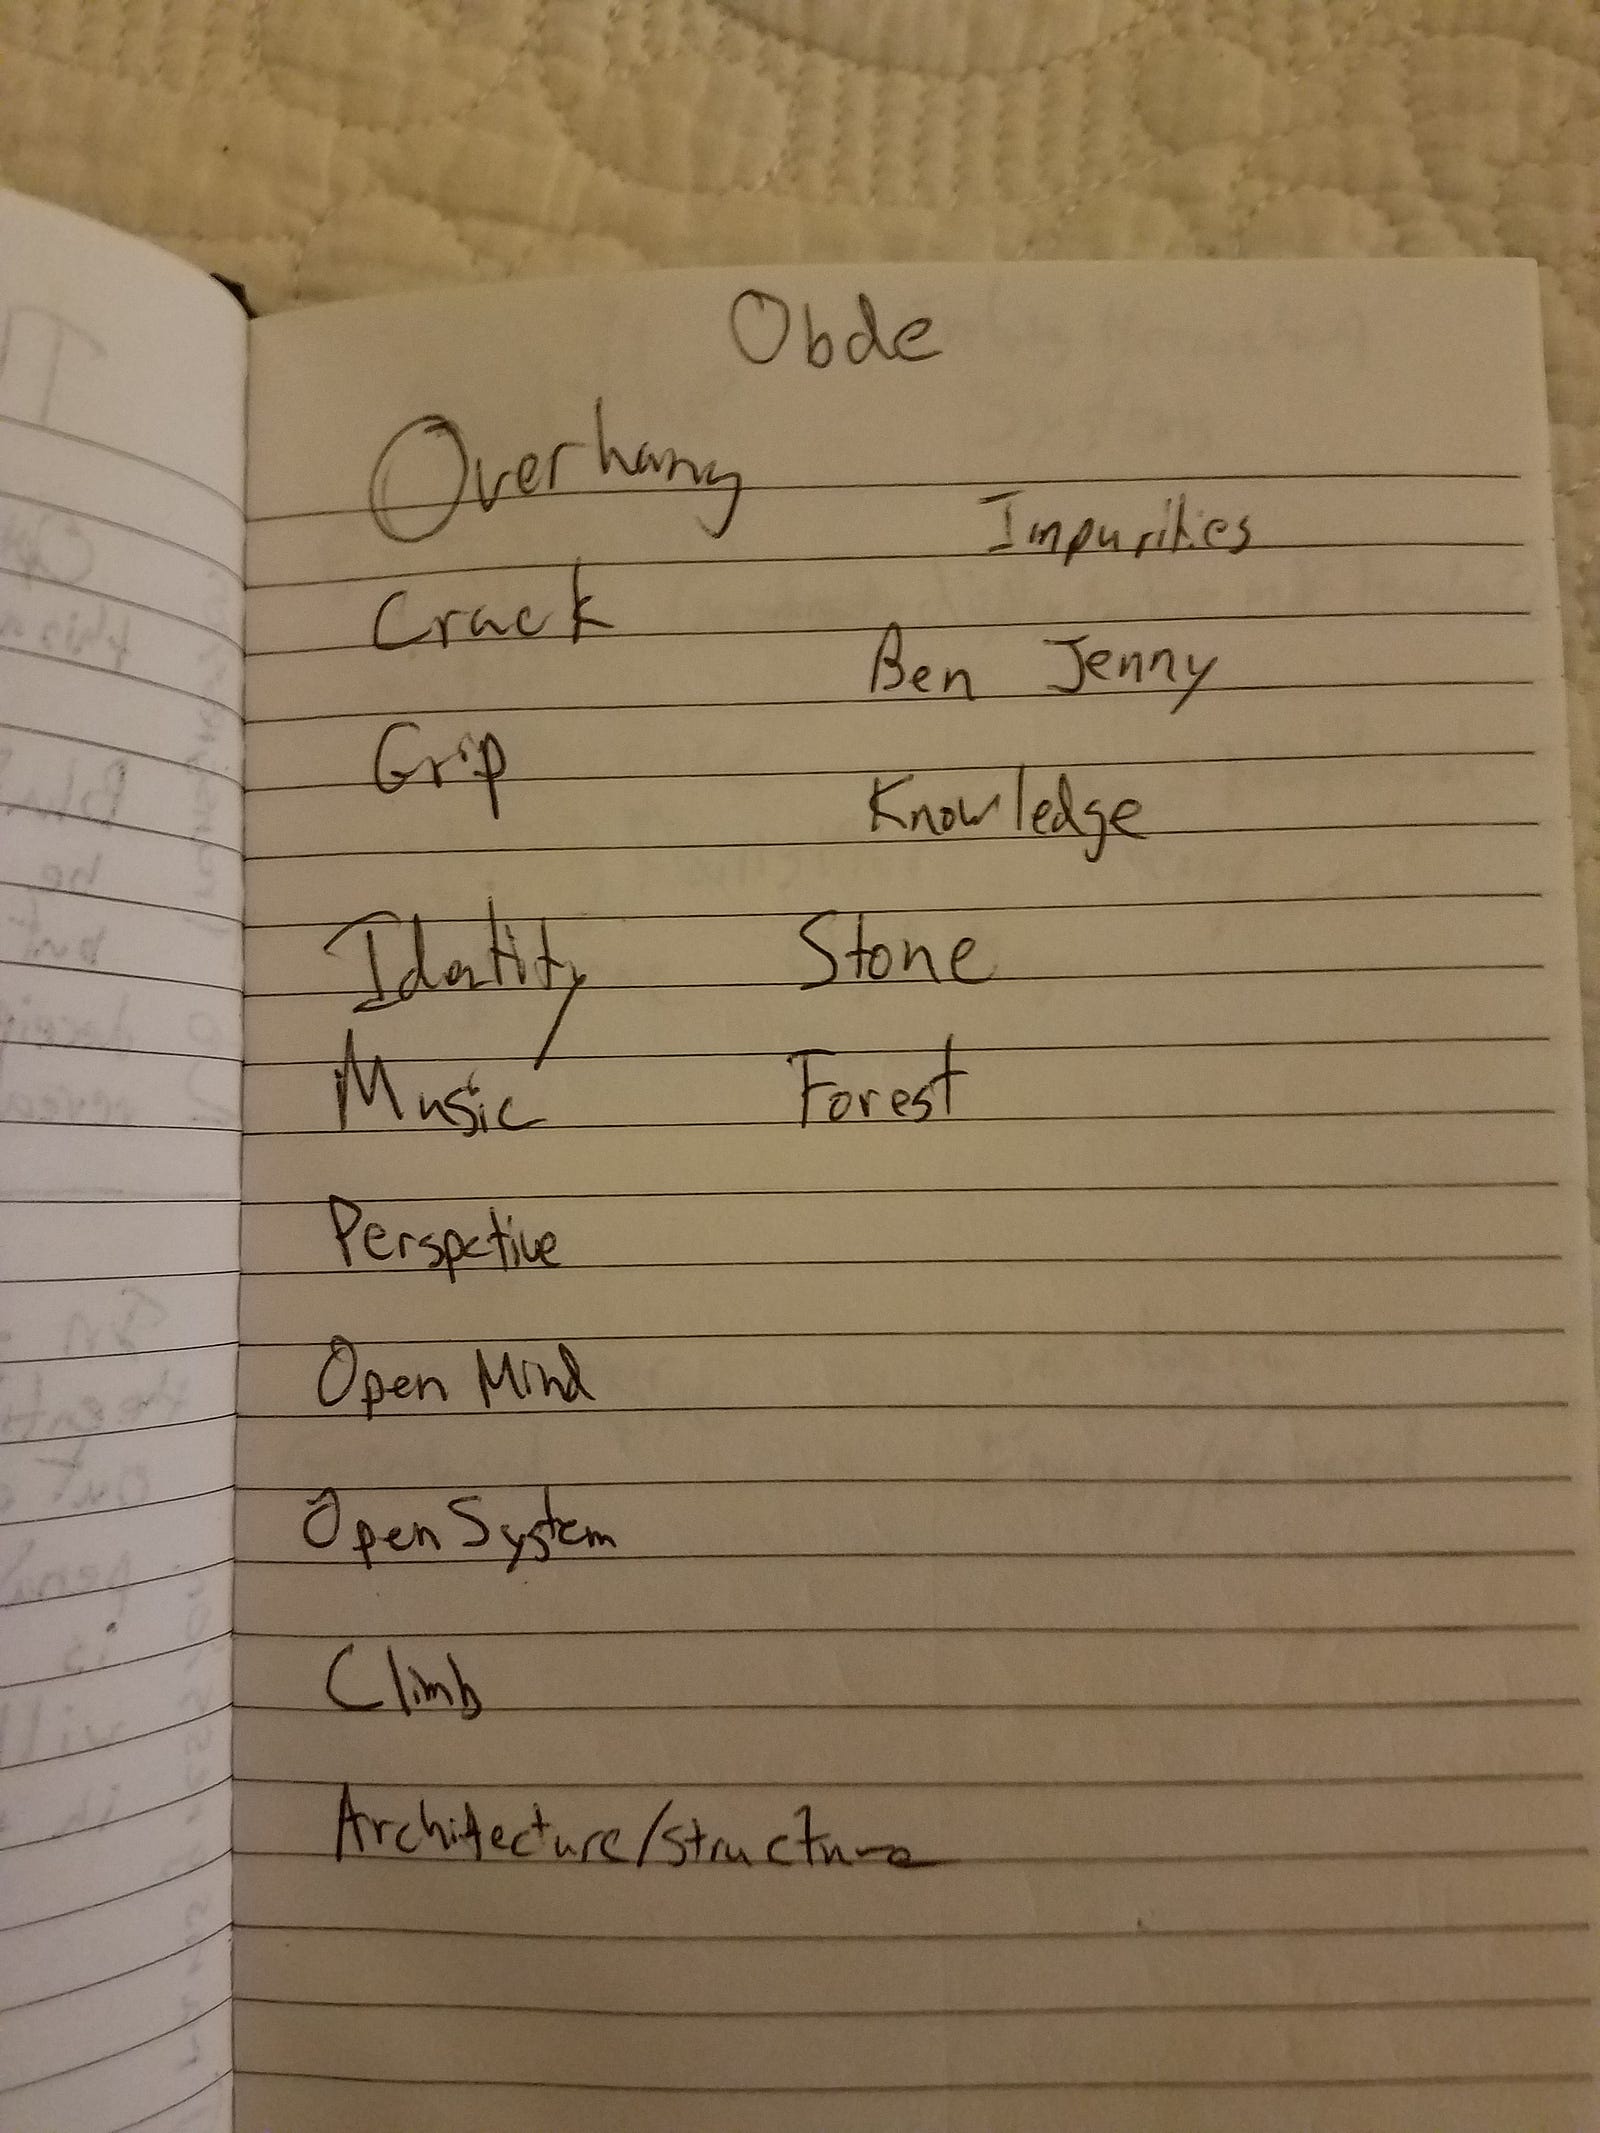 Obde
Overhang
Impurities
Crack
Ben Jenny
Grip
Knowledge
Identity Stone
Music Forest
Perspctive
Open Mind
Open System
Climb
Architecture/structure